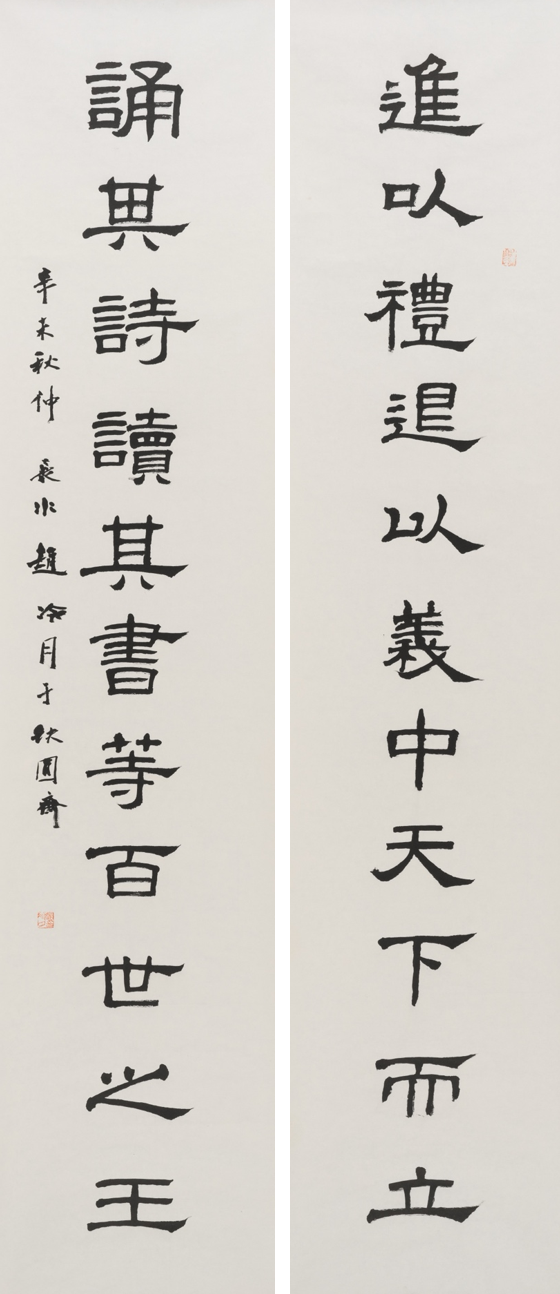 進以禮退以義中天下而立
誦其詩讀其書等百世之王
辛未秋仲 嘉水趙冷月于缺圓齋